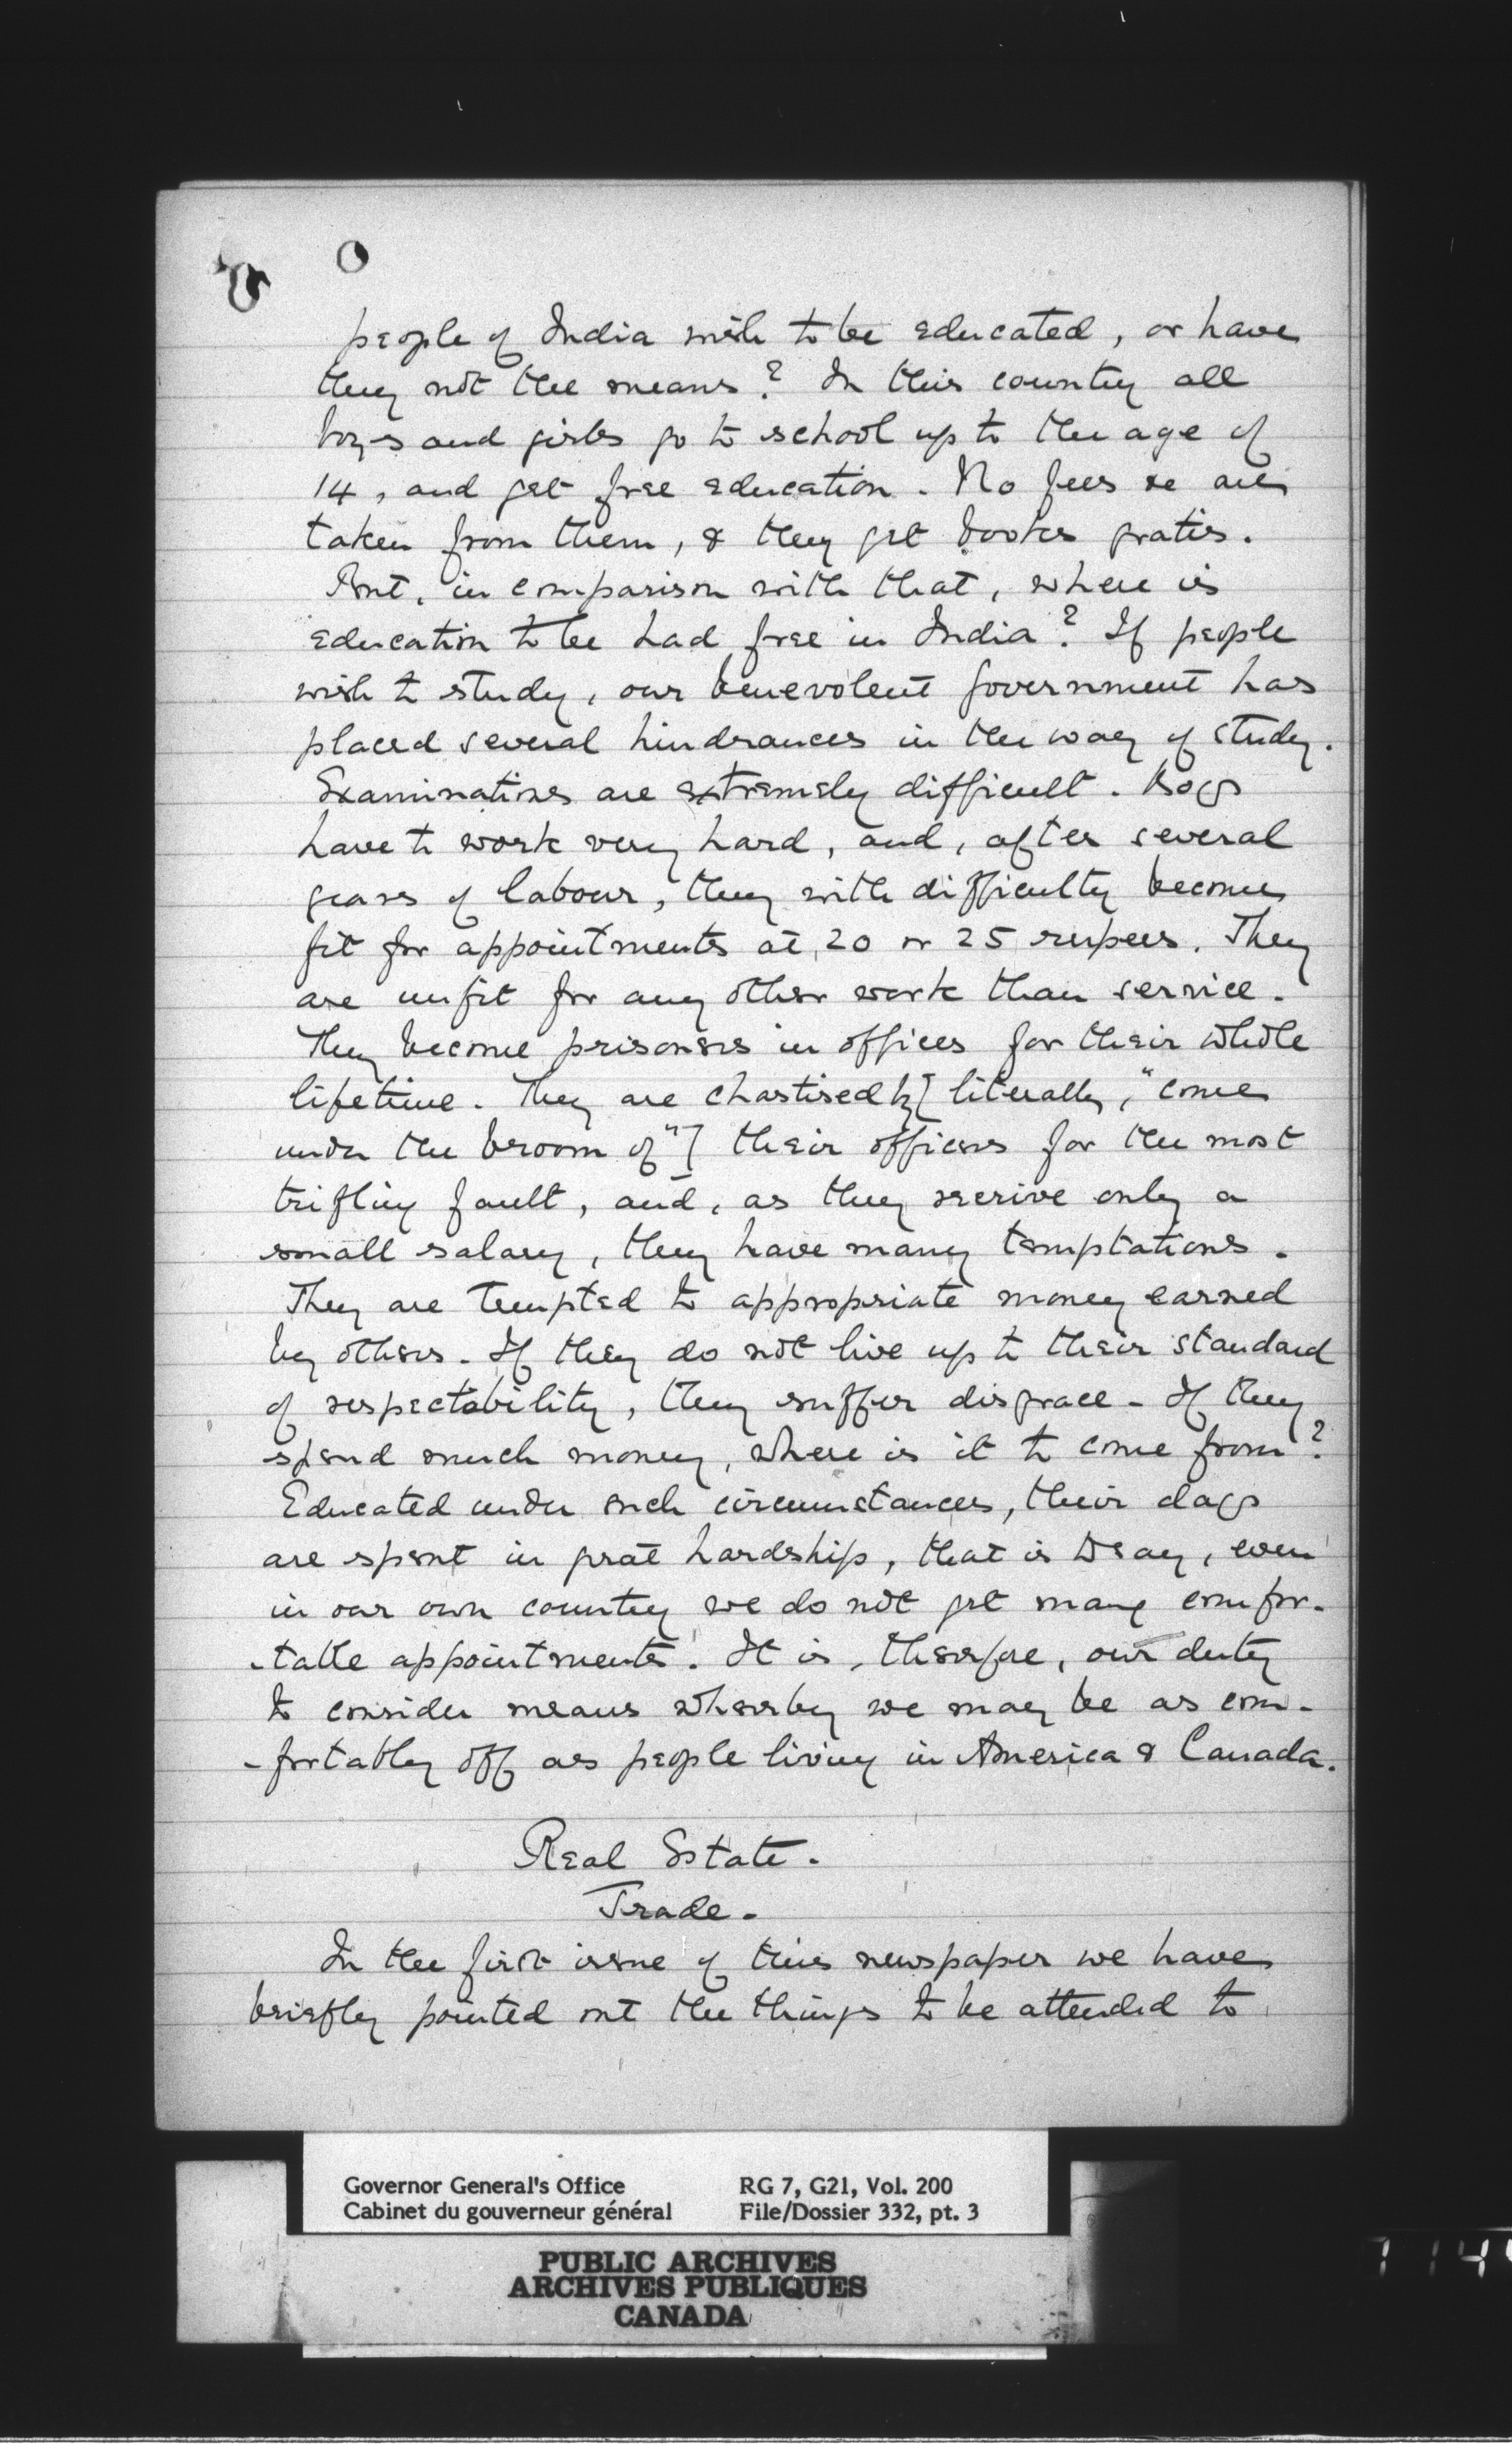 people of India wish to be educated, or have
they not the means? In this country all
boys and girls go to school up to the age of
14, and get free education. No fees are
taken from them, & they get books gratis.
But, in comparison with that, where is
education to be had free in India? If people
wish to study, our benevolent Government has
placed several hindrances in the way of study.
Examinations are extremely difficult. Boys
have to work very hard, and, after several
years of labour, they with difficulty become
fit for appointments at 20 or 25 rupees. They
are unfit for any other work than service.
They become prisoners in offices for their whole
lifetime. They are chastised by [literally, "come
under the broom of"] their officers for the most
trifling fault, and, as they receive only a
small salary, they have many temptations.
They are tempted to appropriate money earned
by others. If they do not live up to their standard
of respectability, they suffer disgrace. If they
spend much money, where is it to come from?
Educated under such circumstances, their days
are spent in great hardship, that is to say, even
in our own country we do not get many comfor-
-table appointments. It is, therefore, our duty
to consider means whereby we may be as com-
-fortably off as people living in America & Canada.
Real Estate.
Trade.
In the first issue of this newspaper we have
briefly pointed out the things to be attended to
Governor General's Office RG 7, G21, Vol. 200
Cabinet du gouverneur général File/Dossier 332, pt. 3
PUBLIC ARCHIVES
ARCHIVES PUBLIQUES
CANADA